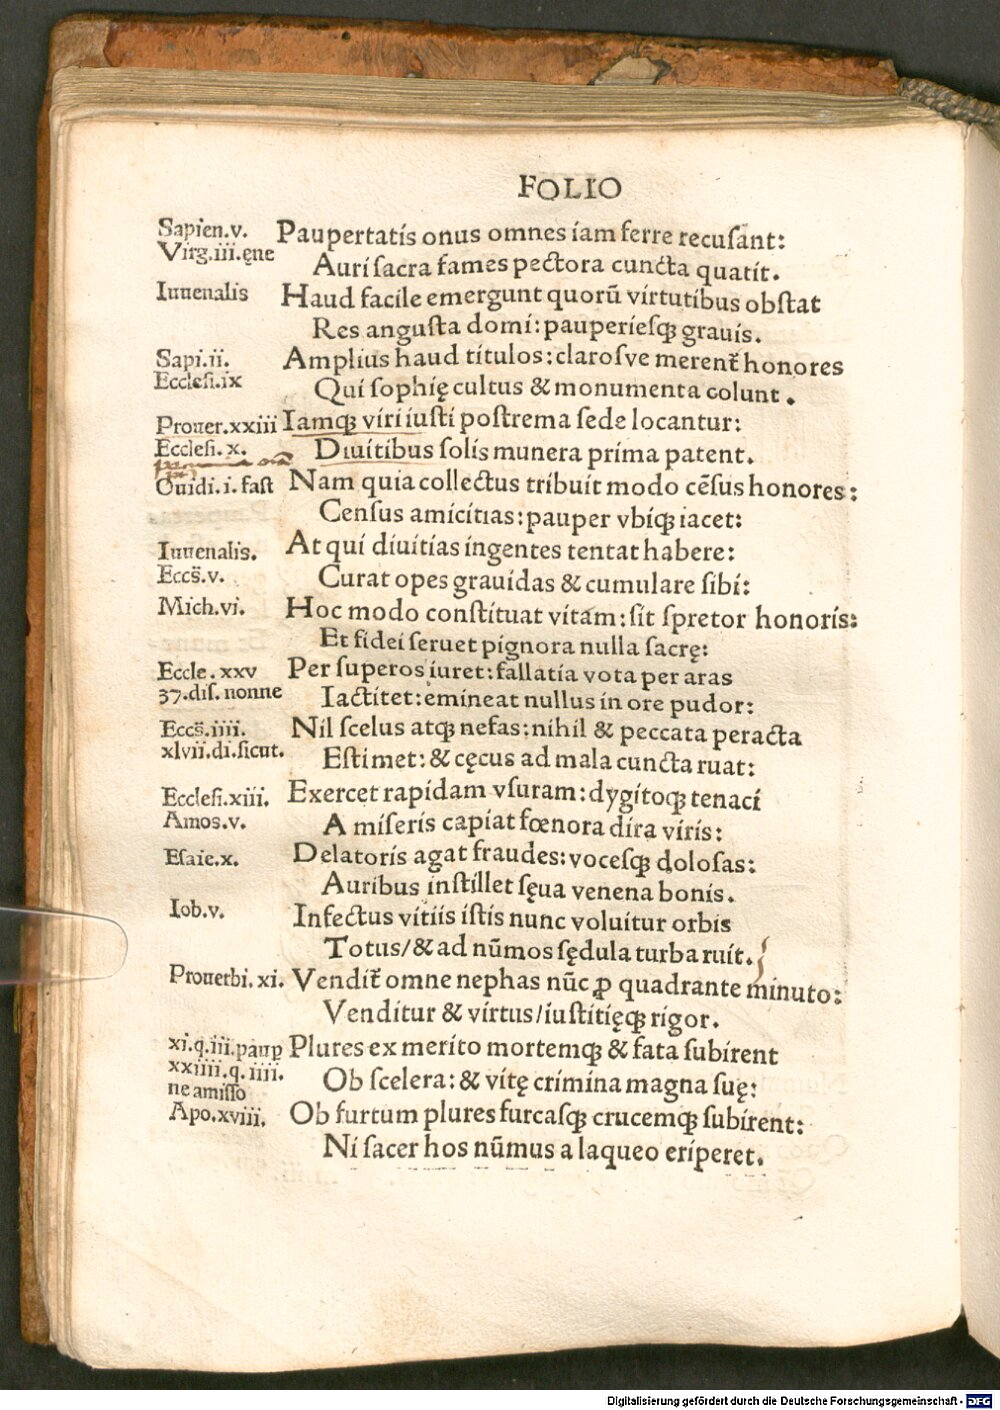 FOLIO
Sapien.v. Paupertatis onus omnes iam ferre recusant:
Virg.iii.ęne Auri sacra fames pectora cuncta quatit.
Iuuenalis Haud facile emergunt quorũ virtutibus obstat
Res angusta domi:pauperiesqꝫ grauis.
Sapi.ii. Amplius haud titulos:clarosve merent̃ honores
Ecclesi.ix Qui sophię cultus & monumenta colunt.
Prouer.xxiii Iamqꝫ viri iusti postrema sede locantur:
Ecclesi.x. Diuitibus solis munera prima patent.
Ouidi.i.fast Nam quia collectus tribuit modo cẽsus honores:
Census amicitias:pauper vbiqꝫ iacet:
Iuuenalis. At qui diuitias ingentes tentat habere:
Eccs̃.v. Curat opes grauidas & cumulare sibi:
Mich.vi. Hoc modo constituat vitam:sit spretor honoris:
Et fidei seruet pignora nulla sacrę:
Eccle.xxv Per superos iuret:fallatia vota per aras
37.dis.nonne Iactitet:emineat nullus in ore pudor:
Eccs̃.iiii. Nil scelus atqꝫ nefas:nihil & peccata peracta
xlvii.di.sicut. Estimet:& cęcus ad mala cuncta ruat:
Ecclesi.xiii. Exercet rapidam vsuram:dygitoqꝫ tenaci
Amos.v. A miseris capiat fœnora dira viris:
Esaie.x. Delatoris agat fraudes:vocesqꝫ dolosas:
Auribus instillet sęua venena bonis.
Iob.v. Infectus vitiis istis nunc voluitur orbis
Totus/& ad nũmos sędula turba ruit.
Prouerbi.xi. Vendit̃ omne nephas nũc ꝓ quadrante minuto:
Venditur & virtus/iustitięqꝫ rigor.
xi.q.iii.paup Plures ex merito mortemqꝫ & fata subirent
xxiiii.q.iiii. Ob scelera:& vitę crimina magna suę:
ne amisso
Apo.xviii. Ob furtum plures furcasqꝫ crucemqꝫ subirent:
Ni sacer hos nũmus a laqueo eriperet.
Digitalisierung gefördert durch die Deutsche Forschungsgemeinschaft - DFG